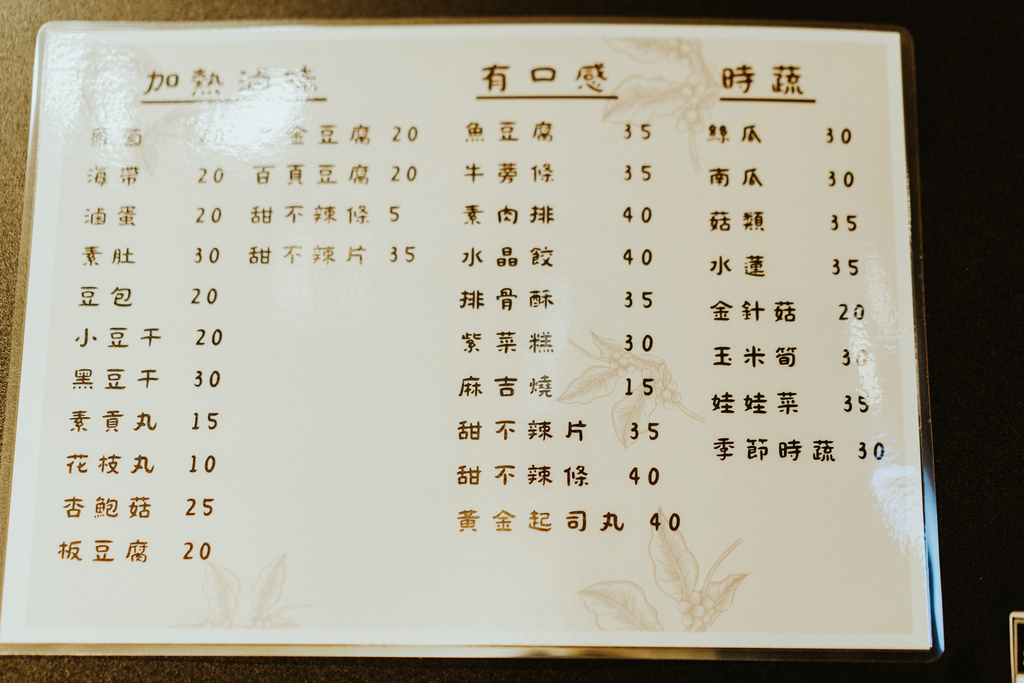 加熱滷味
蘿蔔 20
海帶 20
滷蛋 20
素肚 30
豆包 20
小豆干 20
黑豆干 30
素貢丸 15
花枝丸 10
杏鮑菇 25
板豆腐 20
金豆腐 20
百頁豆腐 20
甜不辣條 5
甜不辣片 35
有口感
魚豆腐 35
牛蒡條 35
素肉排 40
水晶餃 40
排骨酥 35
紫菜糕 30
麻吉燒 15
甜不辣片 35
甜不辣條 40
黃金起司丸 40
時蔬
絲瓜 30
南瓜 30
菇類 35
水蓮 35
金針菇 20
玉米筍 30
娃娃菜 35
季節時蔬 30